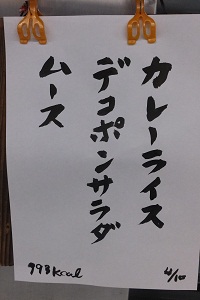 カレーライス
デコポンサラダ
ムース
993kcal
4/10